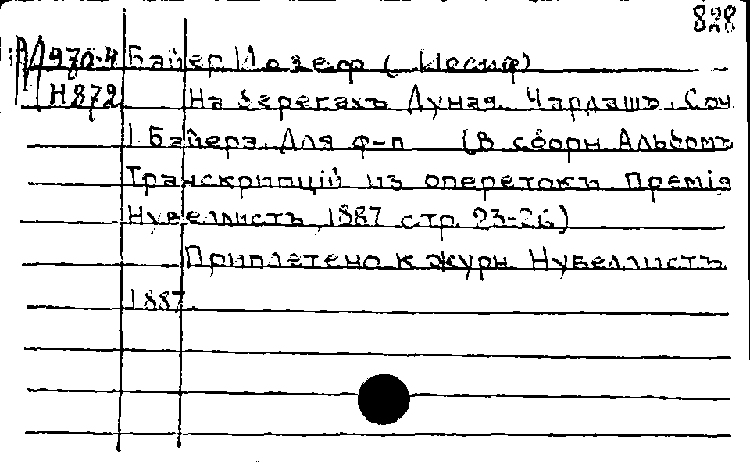 828
970-4 Байер Иозеф (Иосиф)
Н872 На берегахъ Дуная. Чардашъ. Соч
І. Байера. Для ф-п (В сборн Альбомъ
Транскрипцій из оперетокъ Премія
Нувеллистъ 1887 стр. 23-26)
Приплетено к журн. Нувеллистъ
1887.